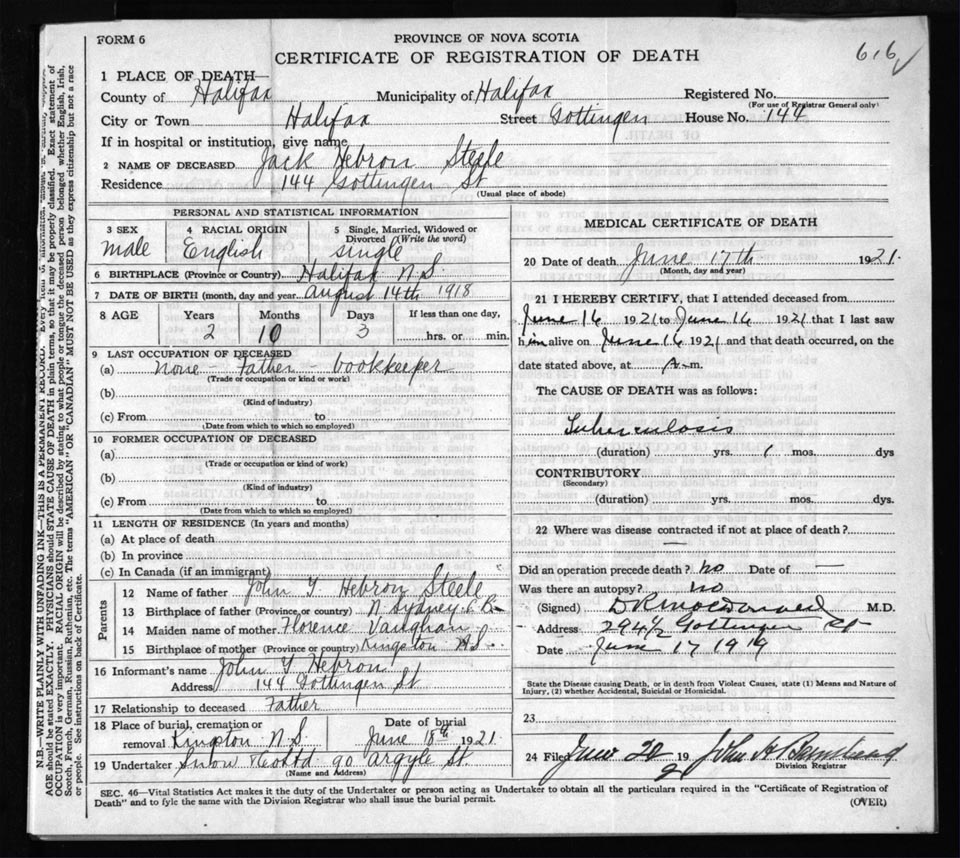 FORM 6
PROVINCE OF NOVA SCOTIA
CERTIFICATE OF REGISTRATION OF DEATH
616
1 PLACE OF DEATH—
County of Halifax Municipality of Halifax Registered No.
(For use of Registrar General only)
City or Town Halifax Street Gottingen House No. 144
If in hospital or institution, give name
2 NAME OF DECEASED Jack Hebron Steele
Residence 144 Gottingen St
(Usual place of abode)
PERSONAL AND STATISTICAL INFORMATION
3 SEX 4 RACIAL ORIGIN 5 Single, Married, Widowed or Divorced (Write the word)
male English single
6 BIRTHPLACE (Province or Country) Halifax N.S.
7 DATE OF BIRTH (month, day and year August 14th 1918
8 AGE Years Months Days If less than one day,
2 10 3 hrs. or min.
9 LAST OCCUPATION OF DECEASED
(a) none - Father - bookkeeper
(Trade or occupation or kind or work)
(b)
(Kind of industry)
(c) From to
(Date from which to which so employed)
10 FORMER OCCUPATION OF DECEASED
(a)
(Trade or occupation or kind of work)
(b)
(Kind of industry)
(c) From to
(Date from which to which so employed)
11 LENGTH OF RESIDENCE (In years and months)
(a) At place of death
(b) In province
(c) In Canada (if an immigrant)
Parents
12 Name of father John Y Hebron Steele
13 Birthplace of father (Province or country) N Sydney C.B.
14 Maiden name of mother Florence Vaughan
15 Birthplace of mother (Province or country) Kingston N.S.
16 Informant's name John Y Hebron
Address 144 Gottingen St
17 Relationship to deceased Father
18 Place of burial, cremation or Date of burial
removal Kingston N.S. June 18th 1921
19 Undertaker Snow & Co Ltd 90 Argyle St
(Name and Address)
MEDICAL CERTIFICATE OF DEATH
20 Date of death June 17th 1921.
(Month, day and year)
21 I HEREBY CERTIFY, that I attended deceased from
June 16 1921 to June 16 1921 that I last saw
him alive on June 16 1921 and that death occurred, on the
date stated above, at A.m.
The CAUSE OF DEATH was as follows:
Tuberculosis
(duration) yrs. 1 mos. dys
CONTRIBUTORY
(Secondary)
(duration) yrs. mos. dys.
22 Where was disease contracted if not at place of death?
—
Did an operation precede death? no Date of —
Was there an autopsy? no
(Signed) M.D.
Address 294½ Gottingen St
Date June 17 1919
State the Disease causing Death, or in death from Violent Causes, state (1) Means and Nature of
Injury, (2) whether Accidental, Suicidal or Homicidal.
23
24 Filed June 20 19 2 John A
Division Registrar
SEC. 46—Vital Statistics Act makes it the duty of the Undertaker or person acting as Undertaker to obtain all the particulars required in the "Certificate of Registration of
Death" and to fyle the same with the Division Registrar who shall issue the burial permit.
(OVER)
N.B.—WRITE PLAINLY WITH UNFADING INK—THIS IS A PERMANENT RECORD. Every item of information
AGE should be stated EXACTLY. PHYSICIANS should STATE CAUSE OF DEATH in plain terms, so that it may be properly classified. Exact statement of
OCCUPATION is very important. RACIAL ORIGIN will be described by stating to what people or tongue the deceased person belonged whether English, Irish,
Scotch, French, German, Russian, Ruthenian, etc. The terms "AMERICAN" OR "CANADIAN" MUST NOT BE USED as they express citizenship but not a race
or people. See instructions on back of Certificate.